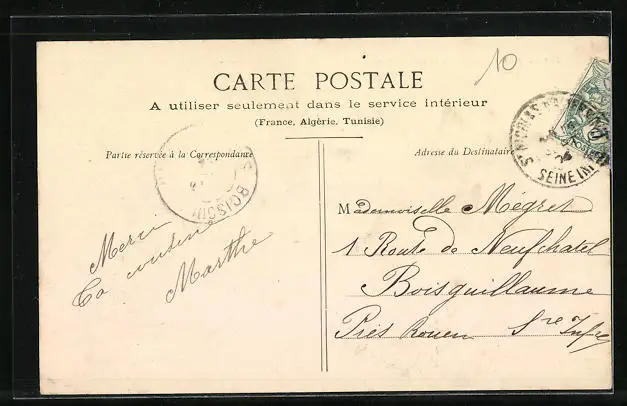 10
CARTE POSTALE
A utiliser seulement dans le service intérieur
(France, Algérie, Tunisie)
Partie réservée à la Correspondance
Adresse du Destinataire
ST NICOLAS
SEINE (INF
BOISGUI
Mademoiselle Mégret
1 Route de Neufchatel
Boisguillaume
Près Rouen Sre Infre
Merci
Ta cousine
Marthe